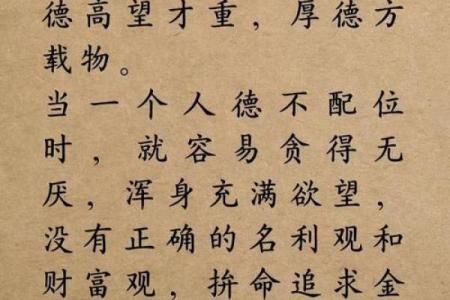 德高望才重，厚德方
载物。
当一个人德不配位
时，就容易贪得无
厌，浑身充满欲望，
没有正确的名利观和
财富观，拚命追求金